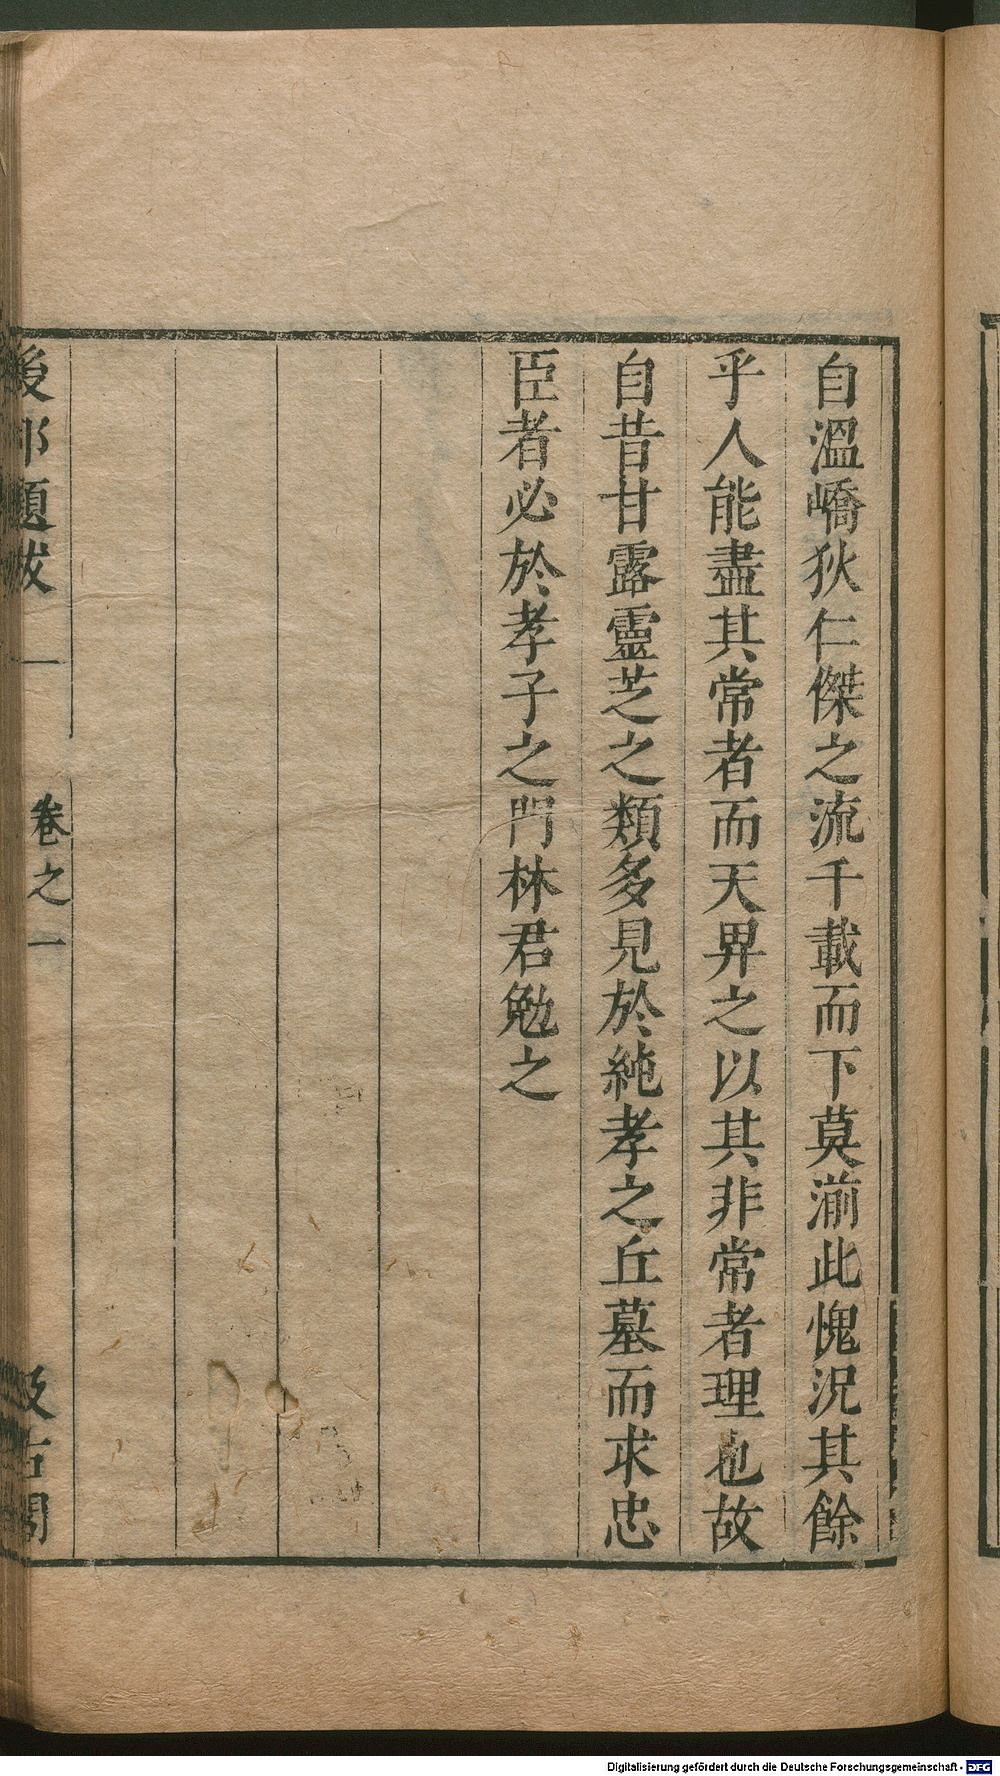 自溫嶠狄仁傑之流千載而下莫湔此愧況其餘
乎人能盡其常者而天畀之以其非常者理也故
自昔甘露靈芝之類多見於純孝之丘墓而求忠
臣者必於孝子之門林君勉之
後邨題跋 一 卷之一 汲古閣
Digitalisierung gefördert durch die Deutsche Forschungsgemeinschaft - DFG